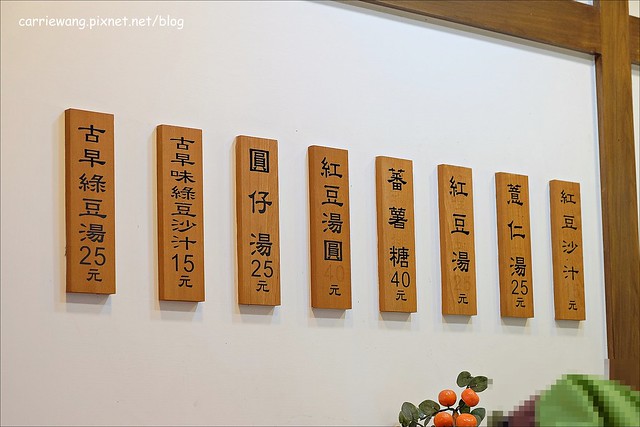 carriewang.pixnet.net/blog
古早綠豆湯25元
古早味綠豆沙汁15元
圓仔湯25元
紅豆湯圓40元
蕃薯糖40元
紅豆湯元
薏仁湯25元
紅豆沙汁元